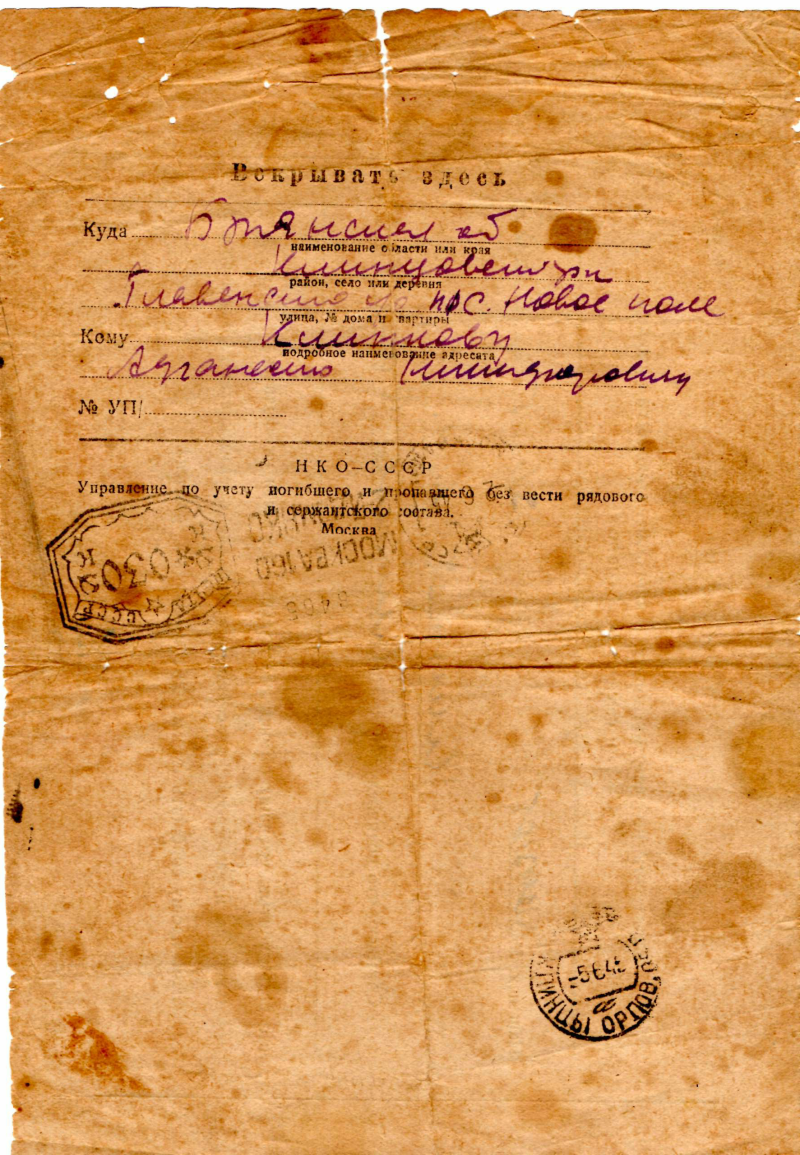 Вскрывать здесь
Куда Брянская об
наименование области или края
Клинцовский рн
район, село или деревня
пос. Новое поле
улица, № дома и квартиры
Кому
подробное наименование адресата
№ УП/
НКО-СССР
Управление по учету погибшего и пропавшего без вести рядового
и сержантского состава.
Москва
МОСКВА 160
030
СССР
-5 6 45
КЛИНЦЫ ОРЛОВ. ОБЛ